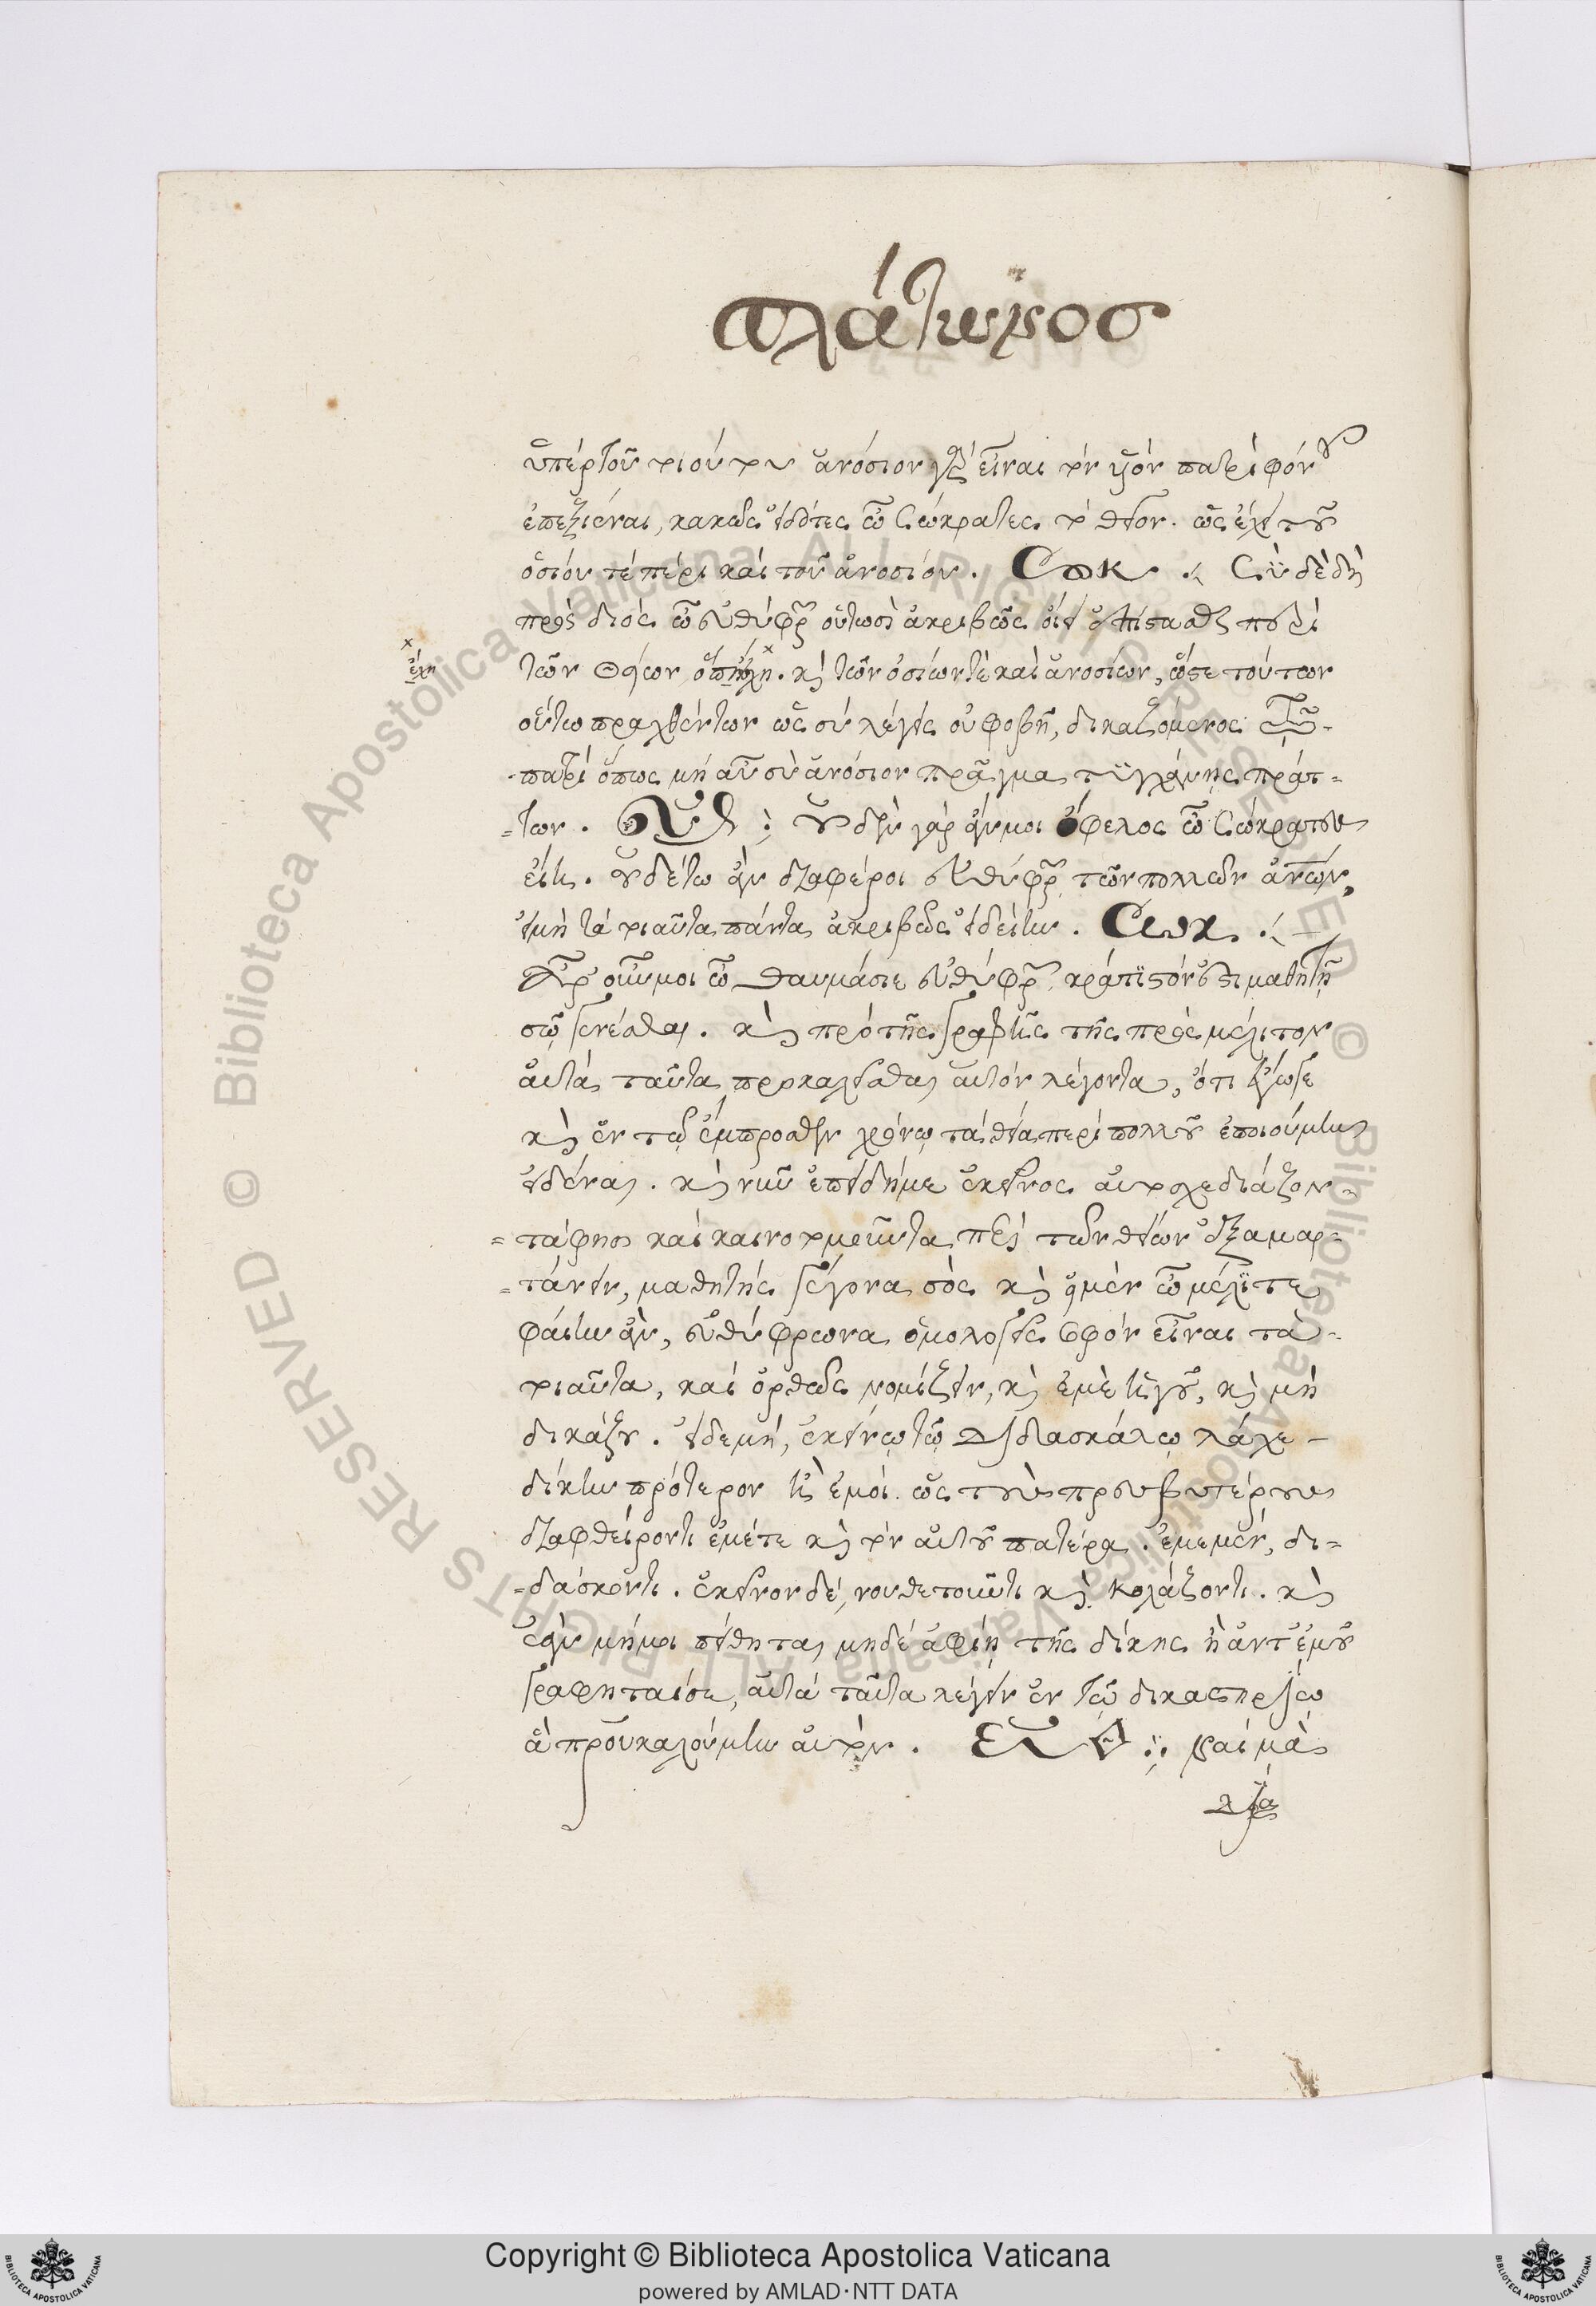 πλάτωνος
ὑπὲρ τοῦ τοιούτου ἀνόσιον γὰρ εἶναι τὸν υἱὸν πατρὶ φόνου
ἐπεξιέναι, κακῶς εἰδότες ὦ Σώκρατες τὸ θεῖον. ὡς ἔχει τοῦ
ὁσίου τὲ πέρι καὶ τοῦ ἀνοσίου. Σωκ. Σὺ δὲ δὴ
πρὸς διὸς ὦ εὐθύφρ οὑτωσὶ ἀκριβῶς οἴει ἐπίστασθαι περὶ
τῶν θείων ὅπη ἔχη. καὶ τῶν ὁσίων τὲ καὶ ἀνοσίων, ὥστε τούτων
ἔχη
οὕτω πραχθέντων ὡς σὺ λέγεις οὐ φοβῇ, δικαζόμενος τῷ
πατρὶ ὅπως μὴ αὖ σὺ ἀνόσιον πρᾶγμα τυγχάνης πράτ=
=των. Εὐθ: οὐδὲν γὰρ ἄν μοι ὄφελος ὦ Σώκρατες
εἴη. οὐδέ τω ἂν διαφέροι εὐθύφρ τῶν πολλῶν ἀνων,
εἰ μὴ τὰ τοιαῦτα πάντα ἀκριβῶς εἰδείην. Σωκ.
Ἆρ οὖν μοι ὦ θαυμάσιε εὐθύφρ κράτιστόν ἐστι μαθητῇ
σῷ γενέσθαι. καὶ πρὸ τῆς γραφῆς τῆς πρὸς μέλιτον
αὐτὰ ταῦτα προκαλεῖσθαι αὐτὸν λέγοντα, ὅτι ἔγωγε
καὶ ἐν τῷ ἔμπροσθεν χρόνῳ τὰ θεῖα περὶ πολλοῦ ἐποιούμην
εἰδέναι. καὶ νῦν ἐπειδή με ἐκεῖνος αὐτοσχεδιάζον=
=τά φησι καὶ καινοτομοῦντα περὶ τῶν θείων ἐξαμαρ=
=τάνειν, μαθητὴς γέγονα σὸς καὶ εἰ μὲν ὦ μέλιτε
φαίην ἂν, εὐθύφρωνα ὁμολογεῖς σοφὸν εἶναι τὰ
τοιαῦτα, καὶ ὀρθῶς νομίζειν, καὶ ἐμὲ ἡγοῦ, καὶ μὴ
δικάζου. εἰ δὲ μή, ἐκείνῳ τῷ διδασκάλῳ λάχε
δίκην πρότερον ἢ ἐμοί. ὡς τοὺς πρεσβυτέρους
διαφθείροντι ἐμέ τε καὶ τὸν αὐτοῦ πατέρα. ἐμὲ μὲν, δι=
=δάσκοντι. ἐκεῖνον δέ, νουθετοῦντι καὶ κολάζοντι. καὶ
ἐὰν μή μοι πείθηται μηδὲ ἀφίῃ τῆς δίκης ἢ ἀντ ἐμοῦ
γράφηταί σε, αὐτὰ ταῦτα λέγειν ἐν τῷ δικαστηρίῳ
ἃ προὐκαλούμην αὐτόν. Εὐθ: Ναὶ μὰ
δία